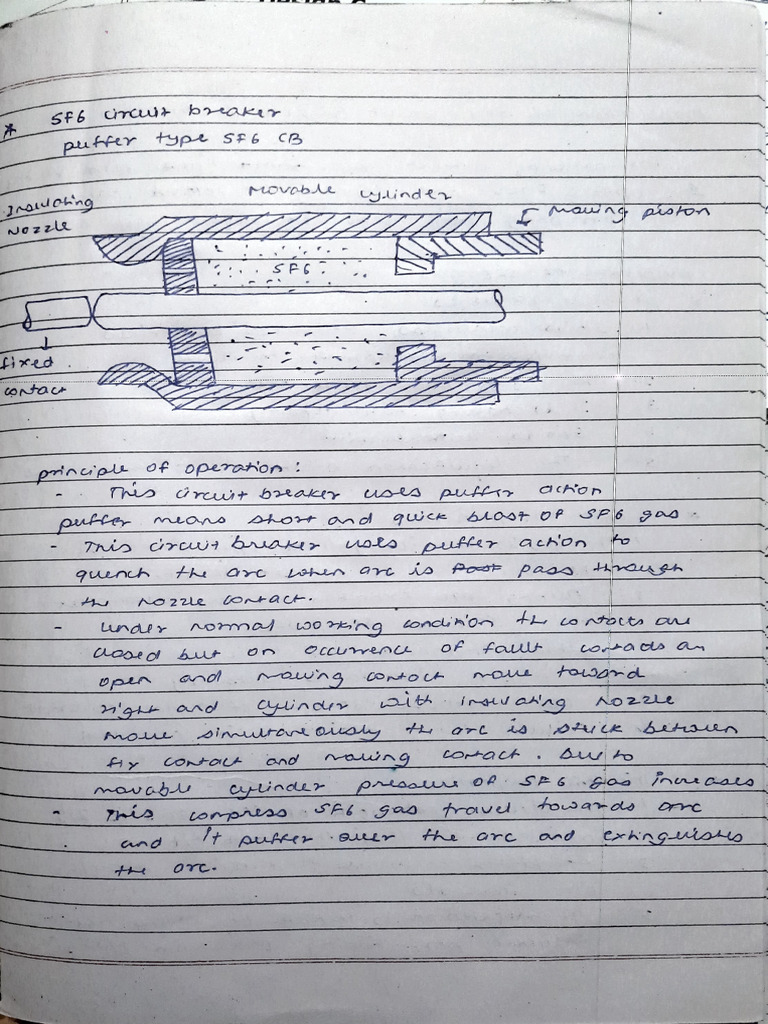 * SF6 circuit breaker
puffer type SF6 CB
Movable cylinder
Insulating
Nozzle
Moving piston
SF6
fixed
contact
principle of operation :
- This circuit breaker uses puffer action
puffer means short and quick blast of SF6 gas.
- This circuit breaker uses puffer action to
quench the arc when arc is pass through
the nozzle contact.
- Under normal working condition the contacts are
closed but on occurrence of fault contacts are
open and moving contact move toward
right and cylinder with insulating nozzle
move simultaneously the arc is strick between
fix contact and moving contact. Due to
movable cylinder pressure of SF6 gas increases
- This compress SF6 gas travel towards arc
and it puffer over the arc and extinguishes
the arc.